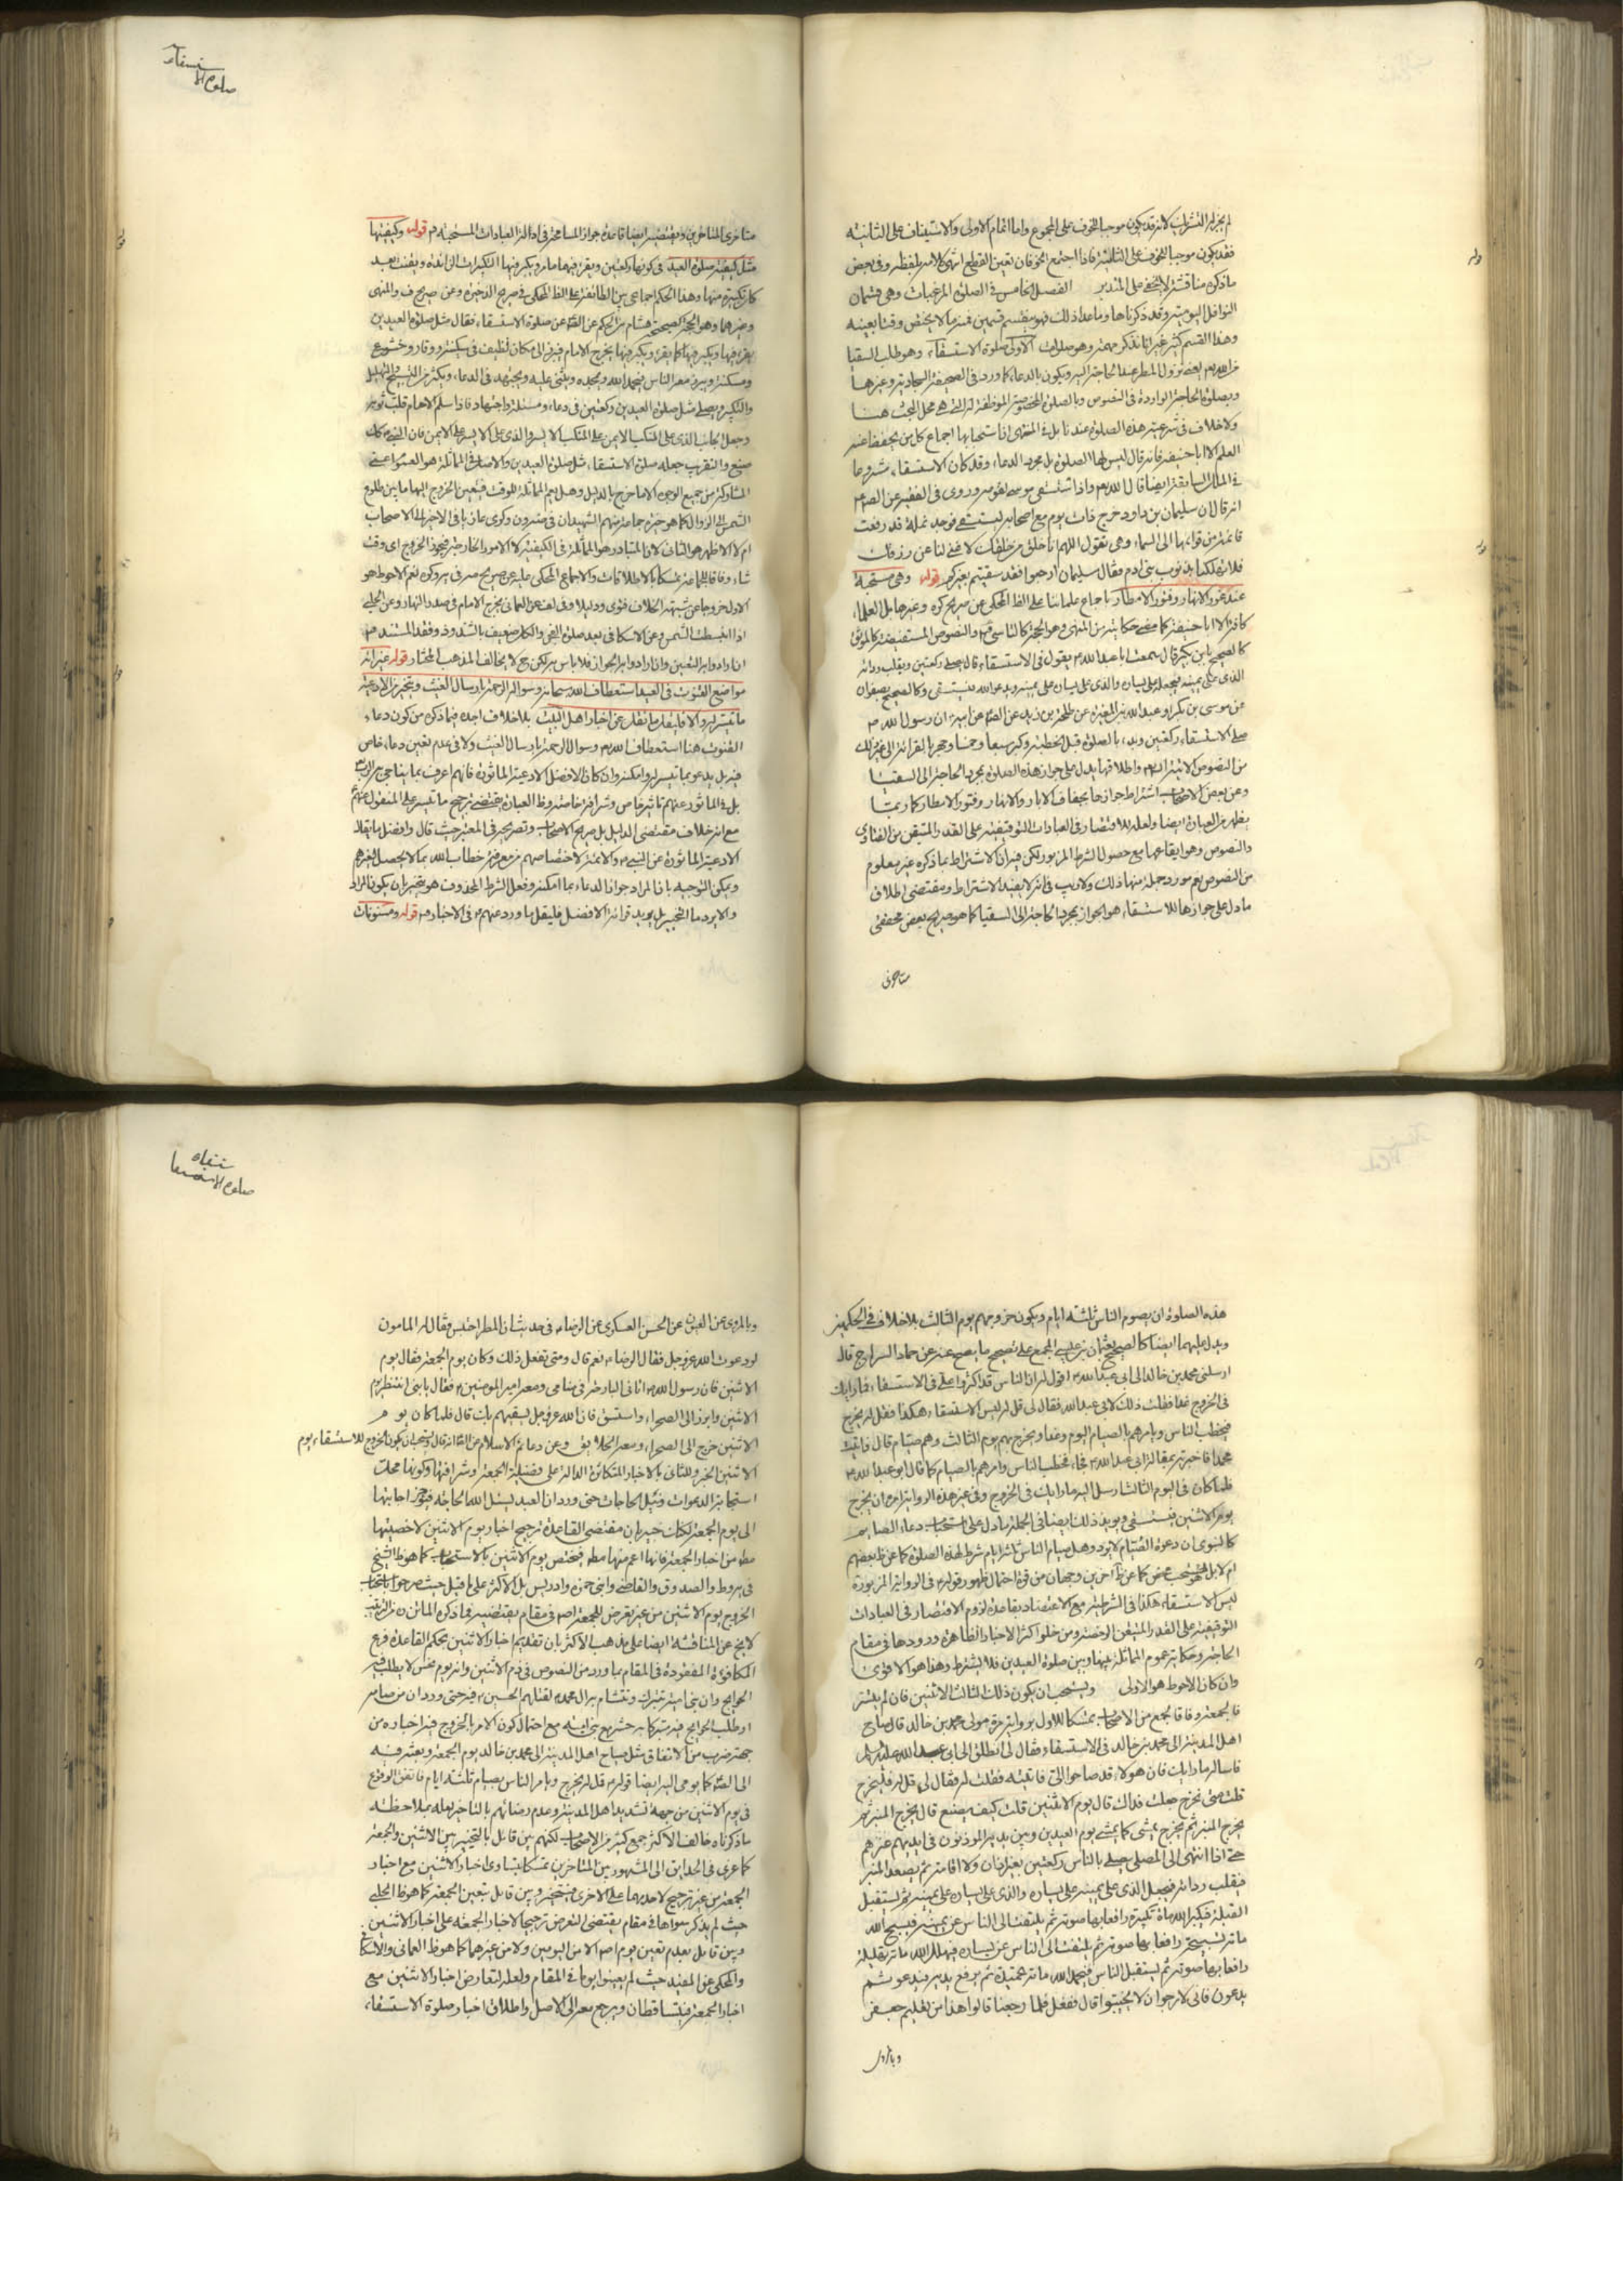 لم يجز له التشريك لانه قد يكون موجبا للخوف على المجموع واما اتمام الاولى والاستيناف على الثانية
فقد يكون موجبا للخوف على الثانية فاذا اجتمع الخوفان تعين القطع انتهى كلامه بلفظه وفى بعض
ما ذكره مناقشة لا تخفى على المتدبر الفصل الخامس فى الصلوة المرغبات وهى قسمان
النوافل اليومية وقد ذكرناها وما عدا ذلك فهو ينقسم قسمين فمنه ما لا يختص وقتا بعينه
وهذا القسم كثير غير انا نذكر مهمه وهو صلوات الاولى صلوة الاستسقاء وهو طلب السقيا
من الله بعض نزول المطر عند الحاجة اليه ويكون بالدعاء كما ورد فى الصحيفة السجادية وغيرها
وبصلوة الحاجة الواردة فى النصوص وبالصلوة المخصوصة الموظفة له التى هى محل البحث هنا
ولا خلاف فى شرعية هذه الصلوة عندنا بل فى المنتهى ان استحبابها اجماع كل من يحفظ عنه
العلم الا ابا حنيفة فانه قال ليس لها الصلوة بل مجرد الدعاء وقد كان الاستسقاء مشروعا
فى الملل السابقة ايضا قال الله واذا استسقى موسى لقومه وروى فى الفقيه عن الصادق
انه قال ان سليمان بن داود خرج ذات يوم مع اصحابه ليستسقى فوجد نملة قد رفعت
قائمة من قوائمها الى السماء وهى تقول اللهم انا خلق من خلقك لا غنى لنا عن رزقك
فلا تهلكنا بذنوب بنى ادم فقال سليمان ارجعوا فقد سقيتم بغيركم قوله وهى مستحبة
عند غور الانهار وفتور الامطار باجماع علمائنا على الظ المحكى عن صريح كره وغيرها بل العلماء
كافة الا ابا حنيفة كما مضى حكايته من المنتهى وهو الحجة كالتاسى والنصوص المستفيضة كالموثق
كالصحيح بابن بكير قال سمعت ابا عبد الله يقول فى الاستسقاء قال يصلى ركعتين ويقلب ردائه
الذى على يمينه فيجعله على يساره والذى على يساره على يمينه ويدعو الله فيستسقى وكالصحيح بصفوان
عن موسى بن بكر او عبد الله بن المغيرة عن طلحة بن زيد عن الصادق عن ابيه ان رسول الله
صلى الاستسقاء ركعتين وبدء بالصلوة قبل الخطبة وكبر سبعا وخمسا وجهر بالقرائة الى غير ذلك
من النصوص الاتية واطلاقها يدل على جواز هذه الصلوة بمجرد الحاجة الى السقيا
وعن بعض الاصحاب اشتراط جوازها بجفاف الابار والانهار وفتور الامطار كما ربما
يظهر من العبارة ايضا ولعله للاقتصار فى العبادات التوقيفية على القدر المتيقن من الفتاوى
والنصوص وهو ايقاعها مع حصول الشرط المزبور لكن فيه ان الاشتراط بما ذكره غير معلوم
من النصوص نعم مورد جملة منها ذلك ولا ريب فى انه لا يفيد الاشتراط ومقتضى اطلاق
ما دل على جوازها للاستسقاء هو الجواز بمجرد الحاجة الى السقيا كما هو صريح بعض محققى
متاخرى
صلوة الاستسقاء
متاخرى المتاخرين ويقتضيه ايضا قاعدة جواز المسامحة فى ادلة العبادات المستحبة قوله وكيفيتها
مثل كيفية صلوة العيد فى كونها ركعتين ويقرء فيهما ما مر ويكبر فيها التكبيرات الزائدة ويقنت بعد
كل تكبيرة منها وهذا الحكم اجماعى بين الطائفة على الظ المحكى فى صريح الذخيرة وعن صريح ف والمنتهى
وغيرهما وهو الحجة كصحيحة هشام بن الحكم عن الصادق عن صلوة الاستسقاء فقال مثل صلوة العيدين
يقرء فيها ويكبر فيها كما يقرء ويكبر فيها يخرج الامام فيبرز الى مكان نظيف فى سكينة ووقار وخشوع
ومسكنة ويبرز معه الناس فيحمد الله ويمجده ويثنى عليه ويجتهد فى الدعاء ويكثر من التسبيح والتهليل
والتكبير ويصلى مثل صلوة العيدين ركعتين فى دعاء ومسئلة واجتهاد فاذا سلم الامام قلب ثوبه
وجعل الجانب الذى على المنكب الايمن على المنكب الايسر والذى على الايسر على الايمن فان النبى كذلك
صنع والتقريب جعله صلوة الاستسقاء مثل صلوة العيدين والاصل فى المماثلة هو العموم اعنى
المشاركة من جميع الوجوه الا ما خرج بالدليل وهل يعم المماثلة للوقت فيتعين الخروج اليها ما بين طلوع
الشمس الى الزوال كما هو خيرة جماعة منهم الشهيدان فى ضه ون وكرى عازيا فى الاخير الى الاصحاب
ام لا الاظهر هو الثانى لان المتبادر هو المماثلة فى الكيفية لا الامور الخارجة فيجوز الخروج اى وقت
شاء وفاقا لجماعة تمسكا بالاطلاقات والاجماع المحكى عليه عن صريح نعم الاحوط هو
الاول خروجا عن شبهة الخلاف فتوى ودليلا وعن العمانى يخرج الامام فى صدر النهار وعن الحلبى
اذا انبسطت الشمس وعن الاسكافى بعد صلوة الفجر والكل ضعيف بالشذوذ وفقد المستند
ان ارادوا به التعيين وان ارادوا به الجواز فلا باس به لكن مع لا يخالف المذهب المختار قوله غير انه
مواضع القنوت فى العيد استعطاف الله سبحانه وسواله الرحمة بارسال الغيث ويتخير من الادعية
ما تيسر له والا فليقل ما نقل عن اخبار اهل البيت بلا خلاف اجده فيما ذكره من كون دعاء
القنوت هنا استعطاف الله وسوال الرحمة بارسال الغيث ولا فى عدم تعين دعاء خاص
فيه بل يدعو بما تيسر له وامكنه وان كان الافضل الادعية الماثورة فانهم اعرف بما يناجى به الرب
بل فى الماثور عنهم تاثير خاص وشرافة خاصة وظ العبارة يقتضى ترجيح ما تيسر على المنقول عنهم
مع انه خلاف مقتضى الدليل بل صريح الاصحاب وتصريحه فى المعتبر حيث قال وافضل ما يقال
الادعية الماثورة عن النبى والائمة لاختصاصهم بمعرفة خطاب الله بما لا يحصل لغيرهم
ويمكن التوجيه بان المراد جواز الدعاء بما امكنه وفعل الشرط المحذوف هو يتخير بان يكون المراد
والا يرد ما التخيير بل يريد قرائة الافضل فليقل ما ورد عنهم فى الاخبار قوله ومسنونات
هذه الصلوة ان يصوم الناس ثلثة ايام ويكون خروجهم يوم الثالث بلا خلاف فى الحكمين
ويدل عليهما ايضا كالصحيح بعثمان بن عيسى المجمع على تصحيح ما يصح عنه عن حماد السراج قال
ارسلنى محمد بن خالد الى ابى عبد الله اقول له ان الناس قد اكثروا على فى الاستسقاء فما رايك
فى الخروج غدا فقلت ذلك لابى عبد الله فقال لى قل له ليس الاستسقاء هكذا فقل له يخرج
فيخطب الناس ويامرهم بالصيام اليوم وغدا ويخرج بهم يوم الثالث وهم صيام قال فاتيت
محمدا فاخبرته بمقالة ابى عبد الله فجاء فخطب الناس وامرهم بالصيام كما قال ابو عبد الله
فلما كان فى اليوم الثالث ارسل اليه ما رايك فى الخروج وفى غير هذه الرواية امره ان يخرج
يوم الاثنين فيستسقى ويويد ذلك ايضا فى الجملة ما دل على استحباب دعاء الصايم
كالنبوى ان دعوة الصايم لا يرد وهل صيام الناس ثلثة ايام شرط لهذه الصلوة كما عن ظ بعضهم
ام لا بل هو مستحب محض كما عن ظ اخرين وجهان من قوة احتمال ظهور قوله فى الرواية المزبورة
ليس الاستسقاء هكذا فى الشرطية مع الاعتضاد بقاعدة لزوم الاقتصار فى العبادات
التوقيفية على القدر المتيقن الرخصة ومن خلو اكثر الاخبار الظاهرة ورودها فى مقام
الحاجة وحكاية عموم المماثلة بينها وبين صلوة العيدين فلا يشترط وهذا هو الاقوى
وان كان الاحوط هو الاولى ويستحب ان يكون ذلك الثالث الاثنين فان لم يتيسر
فالجمعة وفاقا لجمع من الاصحاب تمسكا للاول برواية مرة مولى محمد بن خالد قال صاح
اهل المدينة الى محمد بن خالد فى الاستسقاء فقال لى انطلق الى ابى عبد الله عليه السلام
فاساله ما رايك فان هولاء قد صاحوا الى فاتيته فقلت له فقال لى قل له فليخرج
قلت متى يخرج جعلت فداك قال يوم الاثنين قلت كيف يصنع قال يخرج المنبر ثم
يخرج المنبر ثم يخرج يمشى كما يمشى يوم العيدين وبين يديه الموذنون فى ايديهم عنزهم
حتى اذا انتهى الى المصلى يصلى بالناس ركعتين بغير اذان ولا اقامة ثم يصعد المنبر
فيقلب ردائه فيجعل الذى على يمينه على يساره والذى على يساره على يمينه ثم يستقبل
القبلة فيكبر الله مأة تكبيرة رافعا بها صوته ثم يلتفت الى الناس عن يمينه فيسبح الله
مائة تسبيحة رافعا بها صوته ثم يلتفت الى الناس عن يساره فيهلل الله مائة تهليلة
رافعا بها صوته ثم يستقبل الناس فيحمد الله مائة تحميدة ثم يرفع يديه فيدعو ثم
يدعون فانى لارجو ان لا يخيبوا قال ففعل فلما رجعنا قالوا هذا من تعليم جعفر
وبالمروى
صلوة الاستسقاء
وبالمروى عن العيون عن الحسن العسكرى عن الرضا فى حديث ان المطر احتبس فقال له المامون
لو دعوت الله عز وجل فقال الرضا نعم قال ومتى تفعل ذلك وكان يوم الجمعة فقال يوم
الاثنين فان رسول الله اتانى البارحة فى منامى ومعه امير المومنين فقال يا بنى انتظر يوم
الاثنين وابرز الى الصحراء واستسق فان الله عز وجل يسقيهم بك قال فلما كان يوم
الاثنين خرج الى الصحراء ومعه الخلايق وعن دعائم الاسلام عن الصادق انه قال ويستحب ان يكون الخروج للاستسقاء يوم
الاثنين الخبر وللثانى بالاخبار المتكاثرة الدالة على فضيلة الجمعة وشرافتها وكونها محلا
استجابة الدعوات ونيل الحاجات حتى ورد ان العبد ليسئل الله الحاجة فيؤخر اجابتها
الى يوم الجمعة لكنك خبير بان مقتضى القاعدة ترجيح اخبار يوم الاثنين لاخصيتها
مط من اخبار الجمعة فانها اعم منها مط فيختص يوم الاثنين بالاستحباب كما هو ظ الشيخ
فى يه وط والصدوق والقاضى وابنى حمزة وادريس بل الاكثر على ما قيل حيث صرحوا باستحباب
الخروج يوم الاثنين من غير تعرض للجمعة اصلا فى مقام يقتضيه فما ذكره الماتن من الترتيب
لا يخ عن المناقشة ايضا على مذهب الاكثر بان تقديم اخبار الاثنين بحكم القاعدة فرع
المكافؤة المفقودة فى المقام بما ورد من النصوص فى ذم الاثنين وانه يوم نحس لا يطلب فيه
الحوايج وان بنى امية تتبرك وتتشام به ال محمد لقتلهم الحسين فيه حتى ورد ان من صامه
او طلب الحوايج فيه متبركا به حشر مع بنى امية مع احتمال كون الامر بالخروج فيه اخباره من
جهة ضرب من الاتفاق مثل صياح اهل المدينة الى محمد بن خالد يوم الجمعة وبعثه فيه
الى الصادق كما يومى اليه ايضا قوله قل له يخرج ويامر الناس بصيام ثلثة ايام فاتفق الوقوع
فى يوم الاثنين من جهة تشديد اهل المدينة وعدم رضائهم بالتاخير ولعله بملاحظة
ما ذكرناه خالف الاكثر جمع كثير من الاصحاب لكنهم بين قايل بالتخيير بين الاثنين والجمعة
كما عزى فى الحدايق الى المشهور بين المتاخرين تمسكا بتساوى اخبار الاثنين مع اخبار
الجمعة من غير ترجيح لاحديهما على الاخرى فيتخير وبين قايل بتعين الجمعة كما هو ظ الحلبى
حيث لم يذكر سواها فى مقام يقتضى التعرض ترجيحا لاخبار الجمعة على اخبار الاثنين
وبين قايل بعدم تعين يوم اصلا لا من اليومين ولا من غيرهما كما هو ظ العمانى والاسكافى
والمحكى عن المفيد حيث لم يعينوا يوما فى المقام ولعله لتعارض اخبار الاثنين مع
اخبار الجمعة فيتساقطان ويرجع معه الى الاصل واطلاق اخبار صلوة الاستسقاء